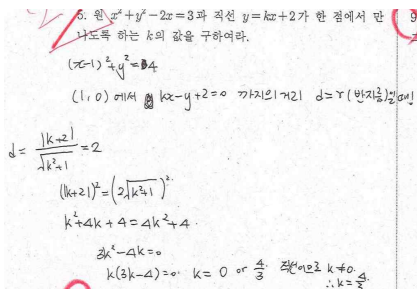 5. 원 x²+y²-2x=3과 직선 y=kx+2가 한 점에서 만
나도록 하는 k의 값을 구하여라.
9
(x-1)²+y²=4
(1, 0) 에서 kx-y+2=0 까지의 거리 d=r(반지름)일때!
d = |k+2| / √(k²+1) = 2
(|k+2|)² = (2√(k²+1))²
k²+4k+4=4k²+4
3k²-4k=0
k(3k-4)=0 k=0 or 4/3 직선이므로 k≠0.
∴k=4/3